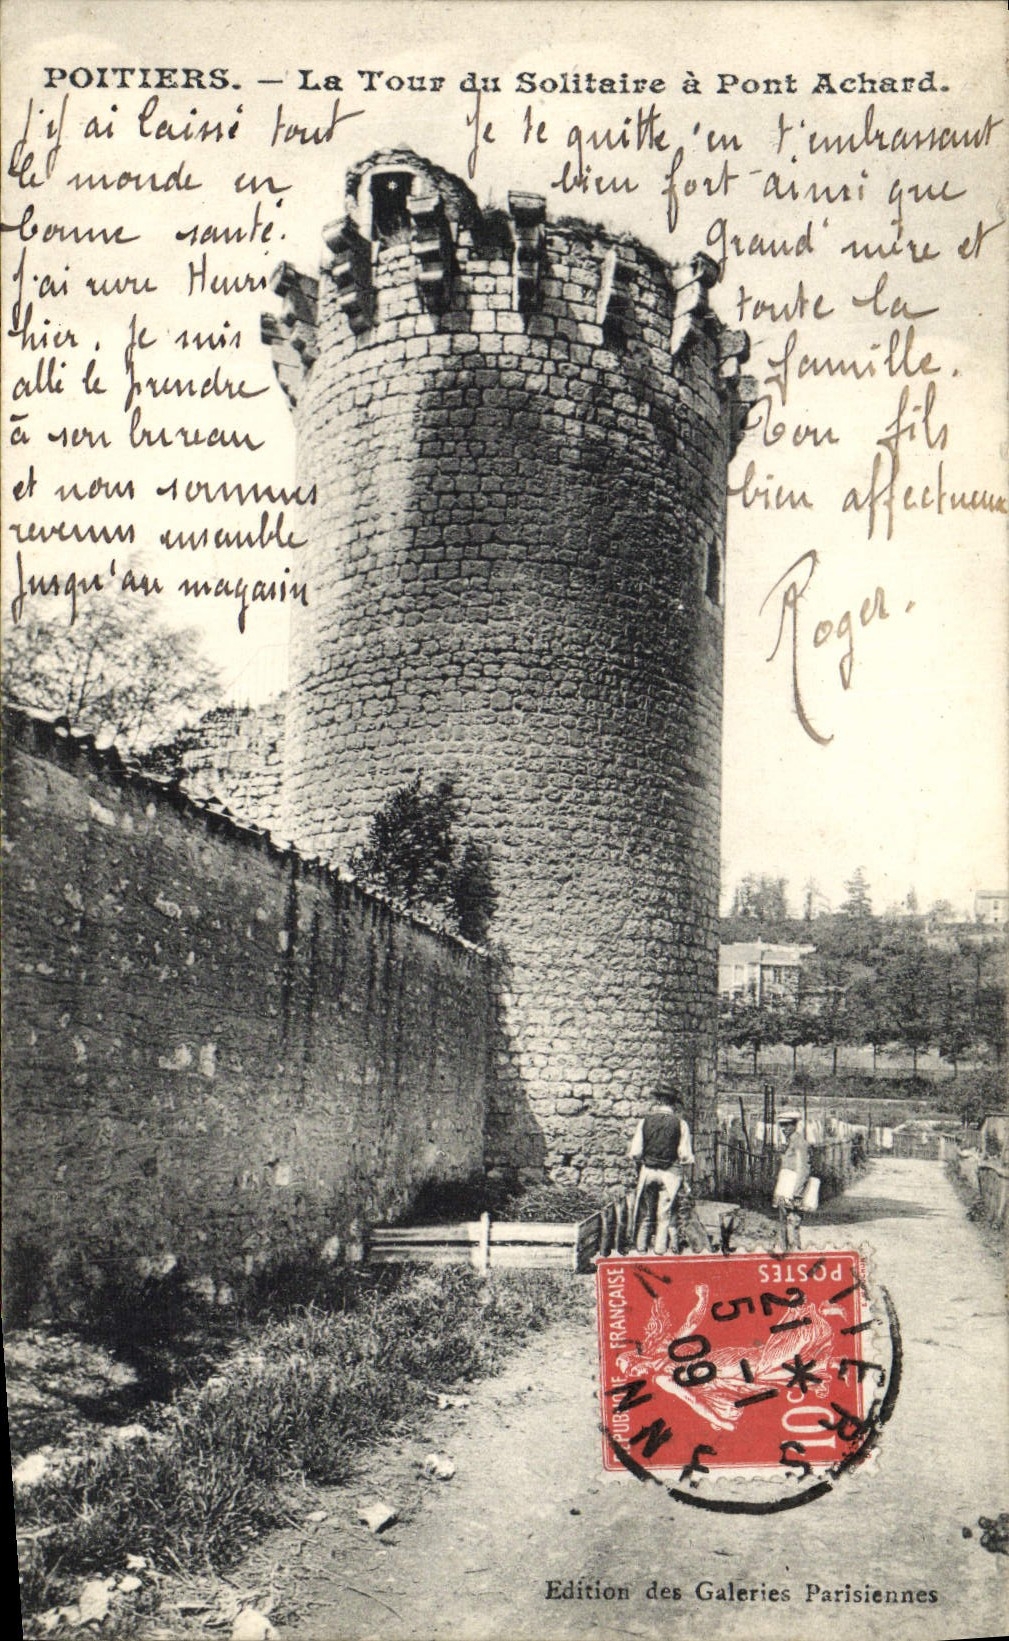 POITIERS. — La Tour du Solitaire à Pont Achard.
J'y ai laissé tout
le monde en
bonne santé.
J'ai revu Henri
hier. Je suis
allé le prendre
à son bureau
et nous sommes
revenus ensemble
jusqu'au magasin
Je te quitte en t'embrassant
bien fort ainsi que
Grand'mère et
toute la
famille.
Ton fils
bien affectueux
Roger.
POSTES
RÉPUBLIQUE FRANÇAISE
10c
POITIERS
21 * 1
5 09
VIENNE
Edition des Galeries Parisiennes